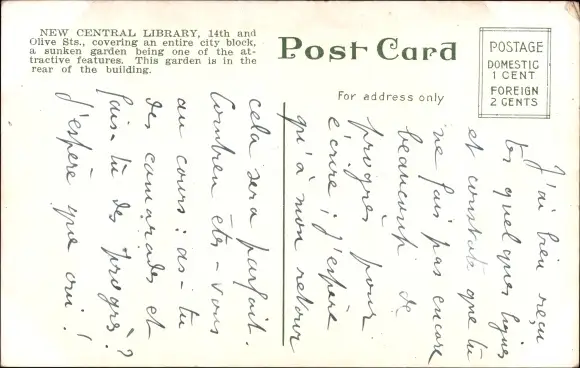 NEW CENTRAL LIBRARY, 14th and
Olive Sts., covering an entire city block,
a sunken garden being one of the at-
tractive features. This garden is in the
rear of the building.
Post Card
For address only
POSTAGE
DOMESTIC
1 CENT
FOREIGN
2 CENTS
J'ai bien reçu
tes quelques lignes
et constate que tu
ne fais pas encore
beaucoup de
progrès pour
écrire ; j'espère
qu'à mon retour
cela sera parfait.
Combien êtes-vous
au cours : as-tu
des camarades et
fais-tu des progrès ?
j'espère que oui !